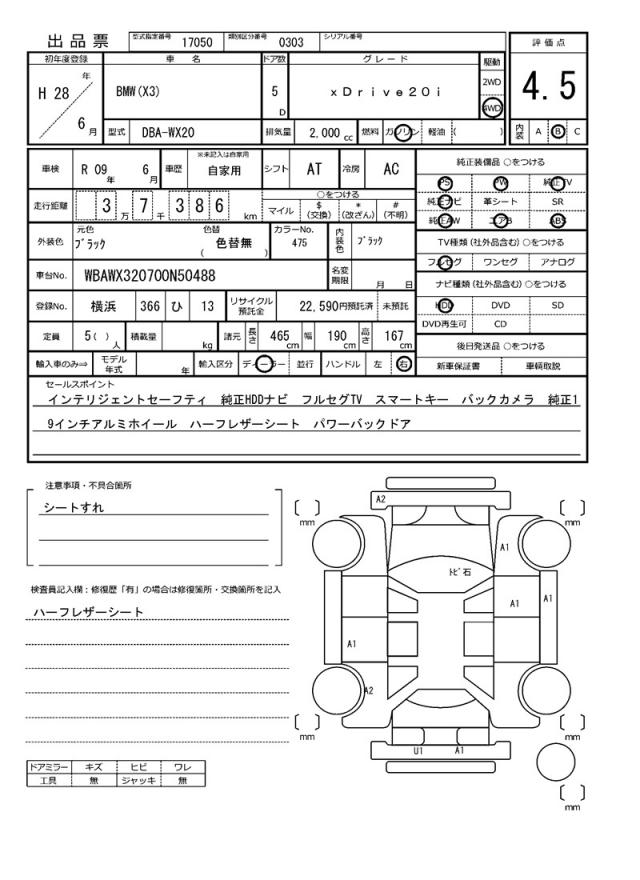 出品票 型式指定番号 17050 類別区分番号 0303 シリアル番号
評価点
4.5
内装 A B C
初年度登録 車名 ドア数 グレード 駆動
H 28 年 6 月 BMW(X3) 5 D xDrive20i 2WD 4WD
型式 DBA-WX20 排気量 2,000 cc 燃料 ガソリン 軽油 ( )
車検 R 09 年 6 月 車歴 ※未記入は自家用 自家用 シフト AT 冷房 AC
走行距離 3 万 7 千 3 8 6 km ○をつける マイル $ (交換) * (改ざん) # (不明)
外装色 元色 ブラック 色替 色替無 ( ) カラーNo. 475 内装色 ブラック
車台No. WBAWX320700N50488 名変期限 月 日
登録No. 横浜 366 ひ 13 リサイクル預託金 22,590円預託済 未預託
定員 5( ) 人 積載量 kg 諸元 長さ 465 cm 幅 190 cm 高さ 167 cm
輸入車のみ⇒ モデル年式 年 輸入区分 ディーラー 並行 ハンドル 左 右
純正装備品 ○をつける
PS PW 純正TV
純正ナビ 革シート SR
純正AW エアB ABS
TV種類(社外品含む)○をつける
フルセグ ワンセグ アナログ
ナビ種類(社外品含む)○をつける
HDD DVD SD
DVD再生可 CD
後日発送品 ○をつける
新車保証書 車輌取説
セールスポイント
インテリジェントセーフティ 純正HDDナビ フルセグTV スマートキー バックカメラ 純正1
9インチアルミホイール ハーフレザーシート パワーバックドア
注意事項・不具合箇所
シートすれ
検査員記入欄：修復歴「有」の場合は修復箇所・交換箇所を記入
ハーフレザーシート
ドアミラー キズ ヒビ ワレ
工具 無 ジャッキ 無
A2
mm
mm
A1
トビ石
A1
A1
A1
A2
mm
mm
U1
A1
mm